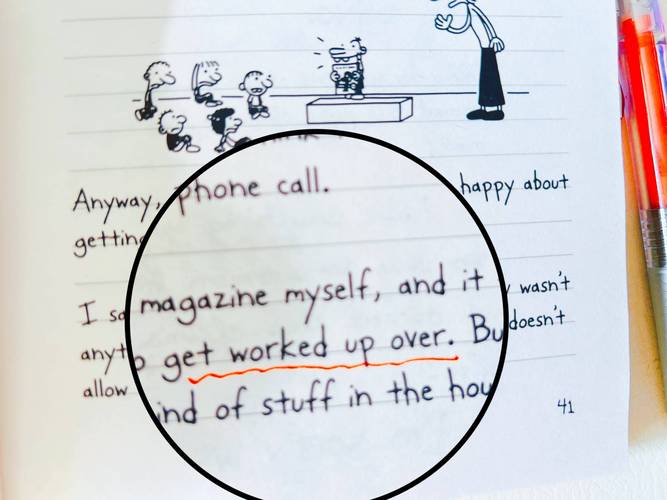 Anyway, phone call. happy about
getting
magazine myself, and it wasn't
I
get worked up over. doesn't
allow of stuff in the
41